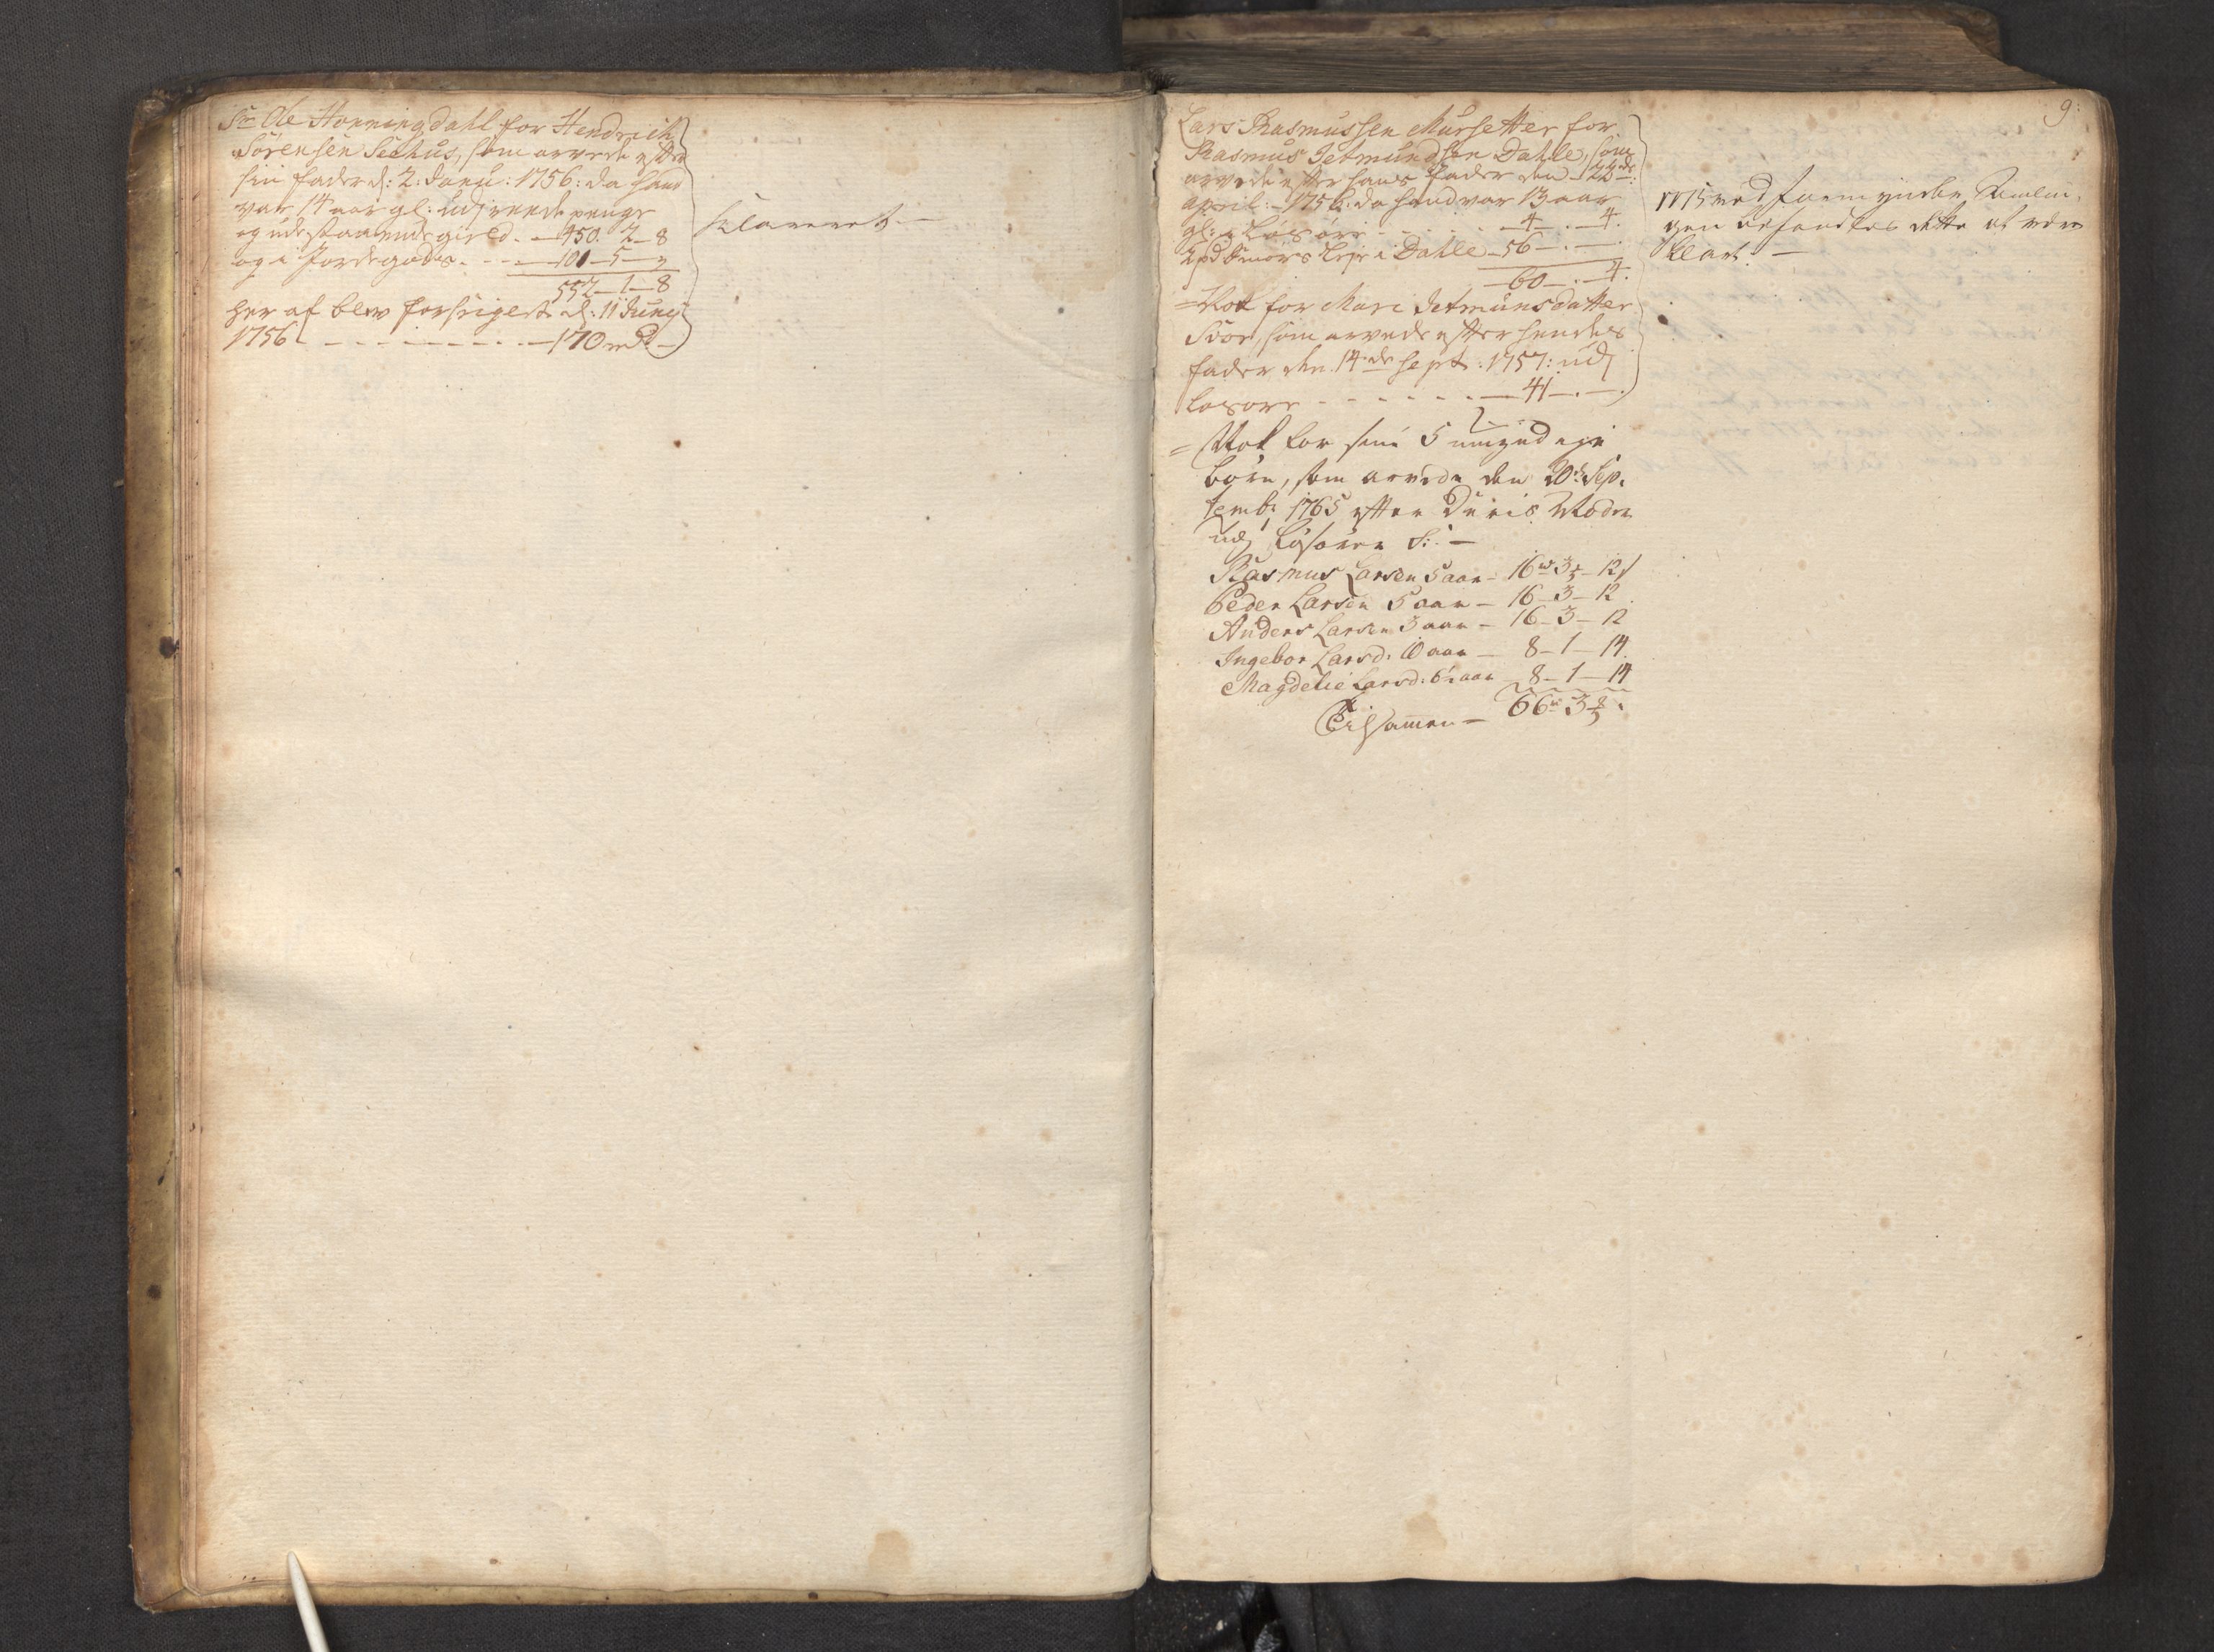 Sr Ole Honningdahl for Hendrich
Sörensen Seehus, som arvede efter
sin fader d: 2: Janu: 1756: da hand
var 14 aar gl: udj reede penge
og udestaaende gield. - 450. 2 - 8
og i Jordegods. - - - 101 - 5 -
552 - 1 - 8
her af blev forsigert d: 11 Junij
1756 - - - - - - - 170 rd -
Klareret -
9:
Lars Rasmussen Mursetter for
Rasmus Jetmundsen Dahle, som
arvede efter hans fader den 22de
April: 1756: da hand var 13 aar
gl: i Lösöre - - - - 4 - . - 4.
2 pd Smörs leje i Dahle - 56 - . - .
60 - . - 4.
= Nok for Mari Jetmunsdatter
som arvede efter hendes
fader den 14de Sept: 1757: udj
Lösöre - - - - - - 41 - . - .
= Nok for sine 5 umyndige
börn, som arvede den 20de Sep-
temb: 1765 efter Deris Moder
udj Lösören S: -
Rasmus Larsen 5 aar - 16 - 3 - 12
Peder Larsen 5 aar - 16 - 3 - 12
Anders Larsen 3 aar - 16 - 3 - 12
Ingebor Larsd: 10 aar - 8 - 1 - 14.
Magdelie Larsd: 6½ aar - 8 - 1 - 14
Tilsammen - 66 - 3 - 8.
1775 ved formynder Saml-
gen befandtes dette at være
klart. -